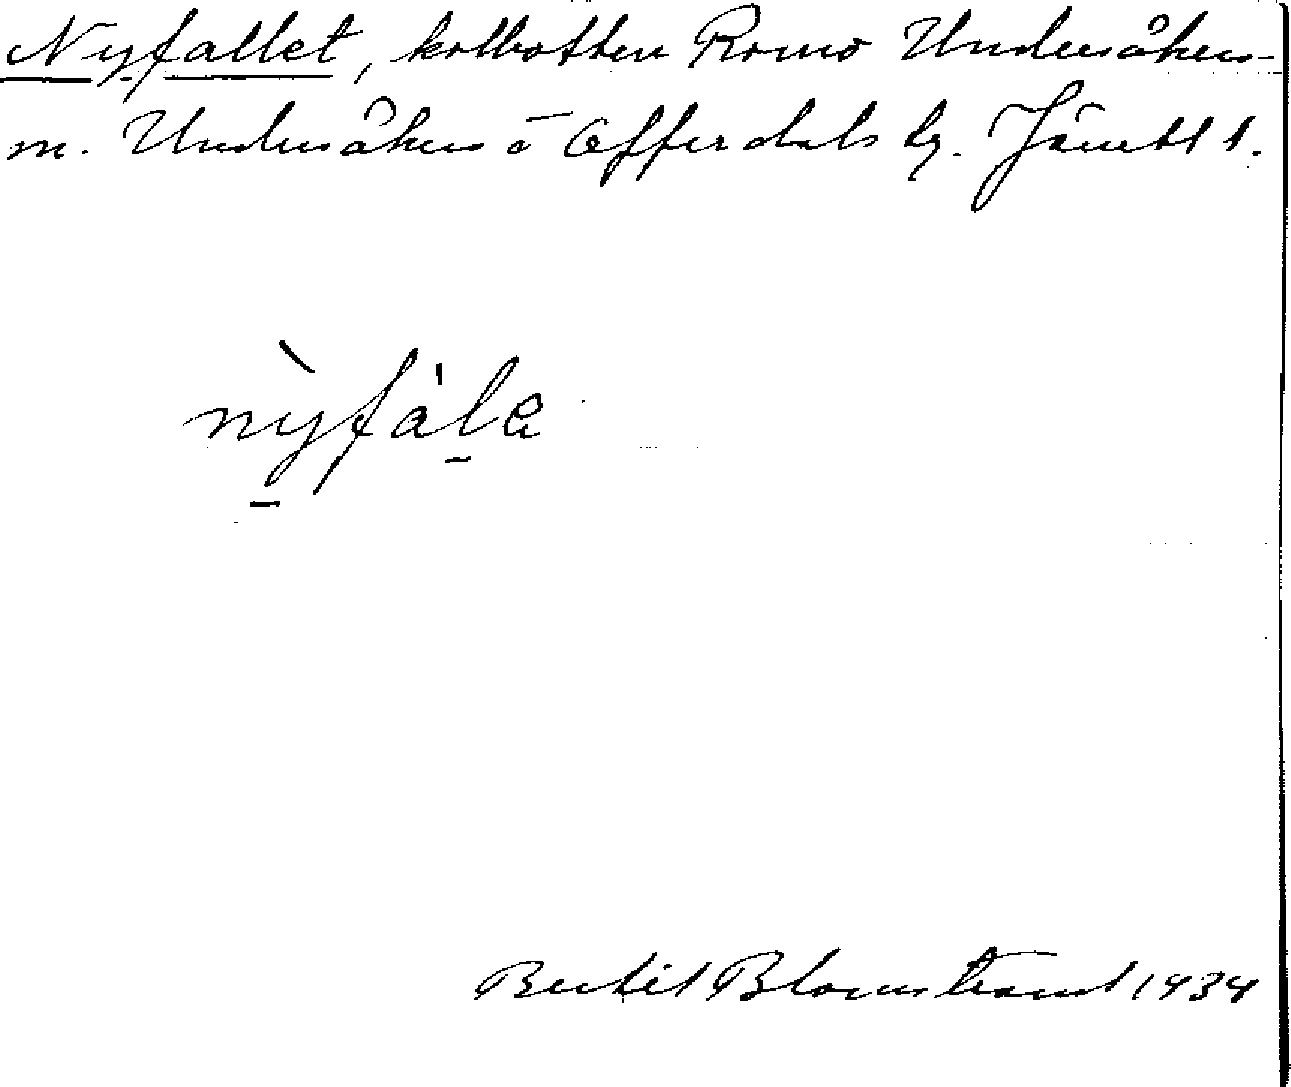 Nyfallet, kolbotten Romo Undersåkers
m. Undersåkers o Offerdals tg. Jämtl l.
nỳfàle
Bertil Blomstrand 1934